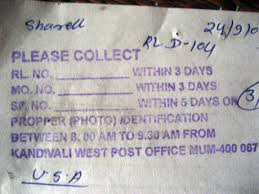 Sharell 24/9/0
RL D-104
PLEASE COLLECT
RL. NO. WITHIN 3 DAYS
MO. NO. WITHIN 3 DAYS
SP. NO. WITHIN 5 DAYS ON 3
PROPPER (PHOTO) IDENTIFICATION
BETWEEN 8.00 AM TO 9.30 AM FROM
KANDIVALI WEST POST OFFICE MUM-400 067
U.S.A